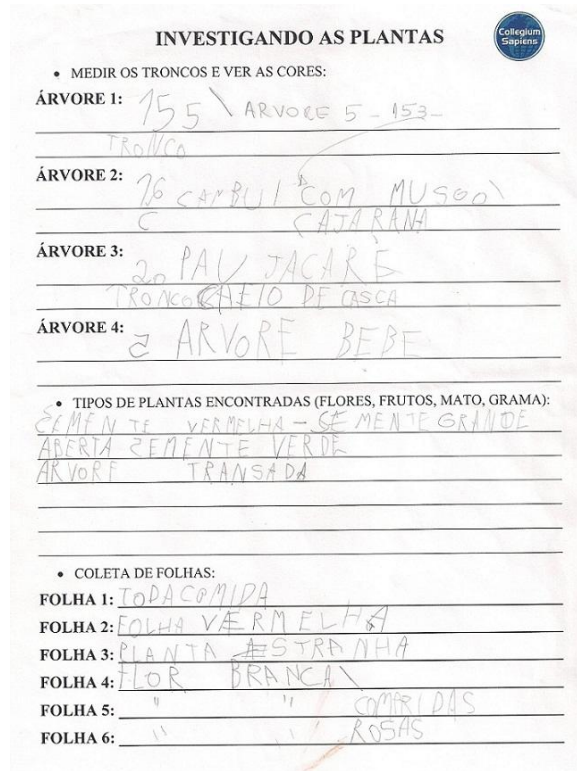 INVESTIGANDO AS PLANTAS
Collegium Sapiens
• MEDIR OS TRONCOS E VER AS CORES:
ÁRVORE 1: 155 \ ARVORE 5 - 153 -
TRONCO
ÁRVORE 2: 76 CAMBUI COM MUSGO \
C CAJARANA
ÁRVORE 3: 20 PAU JACARÉ
TRONCO CHEIO DE CASCA
ÁRVORE 4: 2 ARVORE BEBE
• TIPOS DE PLANTAS ENCONTRADAS (FLORES, FRUTOS, MATO, GRAMA):
SEMENTE VERMELHA - SEMENTE GRANDE
ABERTA SEMENTE VERDE
ARVORE TRANSADA
• COLETA DE FOLHAS:
FOLHA 1: TODA COMIDA
FOLHA 2: FOLHA VERMELHA
FOLHA 3: PLANTA ESTRANHA
FOLHA 4: FLOR BRANCA \
FOLHA 5: " " COMPRIDAS
FOLHA 6: " " ROSAS